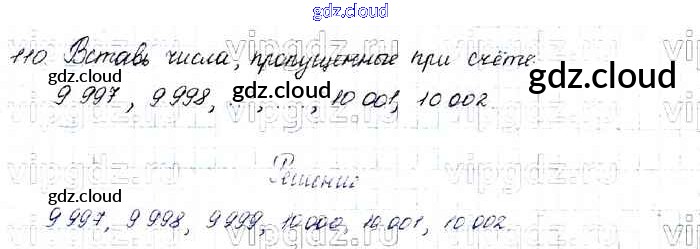 gdz.cloud
110. Вставь числа, пропущенные при счёте:
gdz.cloud
gdz.cloud
9 997, 9 998, ..., ..., 10 001, 10 002.
gdz.cloud
Решение
gdz.cloud
9 997, 9 998, 9 999, 10 000, 10 001, 10 002.
gdz.cloud